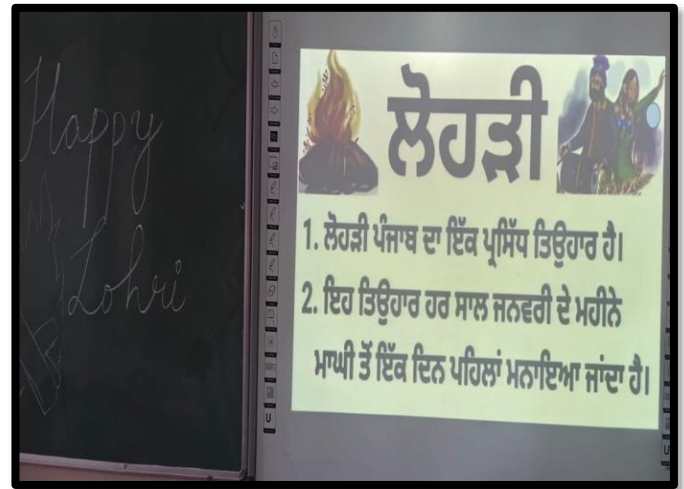 Happy
Lohri
ਲੋਹੜੀ
1. ਲੋਹੜੀ ਪੰਜਾਬ ਦਾ ਇੱਕ ਪ੍ਰਸਿੱਧ ਤਿਉਹਾਰ ਹੈ।
2. ਇਹ ਤਿਉਹਾਰ ਹਰ ਸਾਲ ਜਨਵਰੀ ਦੇ ਮਹੀਨੇ
ਮਾਘੀ ਤੋਂ ਇੱਕ ਦਿਨ ਪਹਿਲਾਂ ਮਨਾਇਆ ਜਾਂਦਾ ਹੈ।